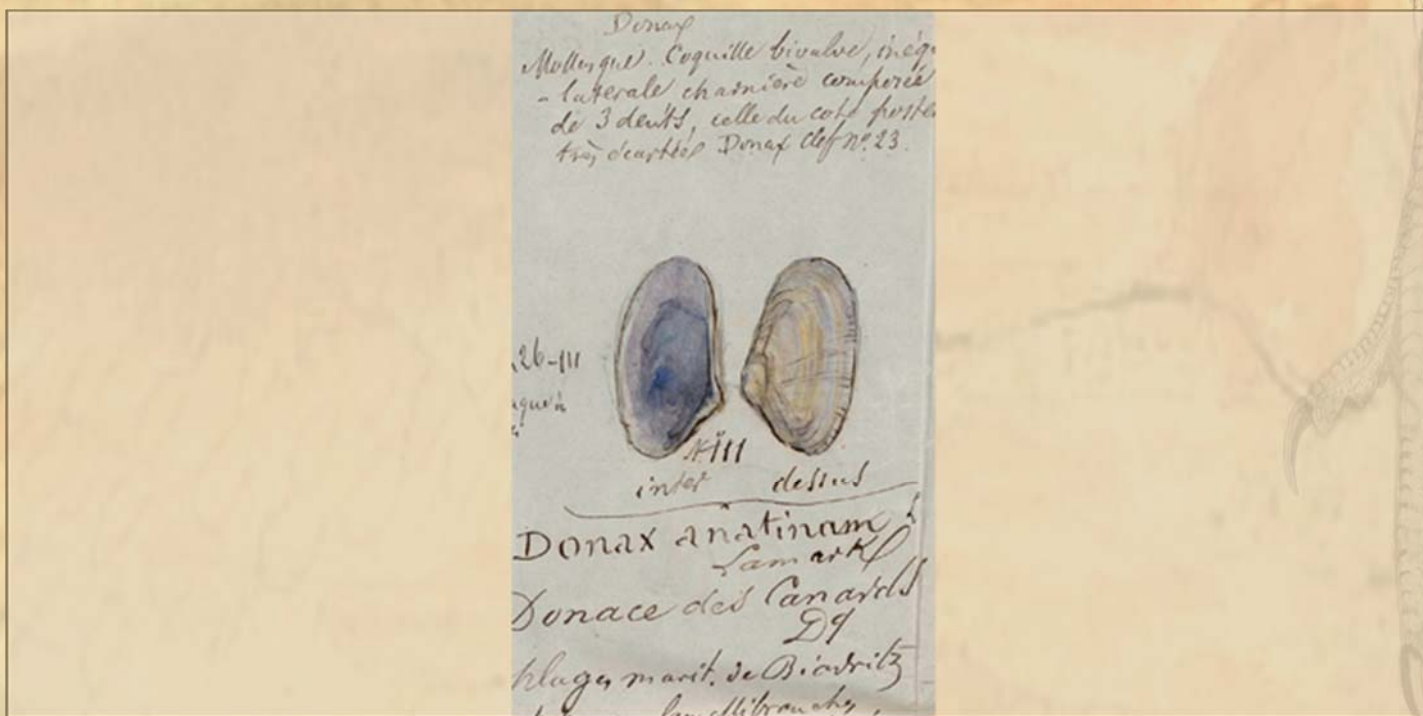 Donax
Mollusque. Coquille bivalve, inéq
-laterale charnière composée
de 3 dents, celle du coté poste
très écartée Donax Clef nº. 23.
26-III
III
inter dessus
Donax anatinam
Lamark
Donace des Canards
Dq
plages marit. de Biarritz
lamellibranches,